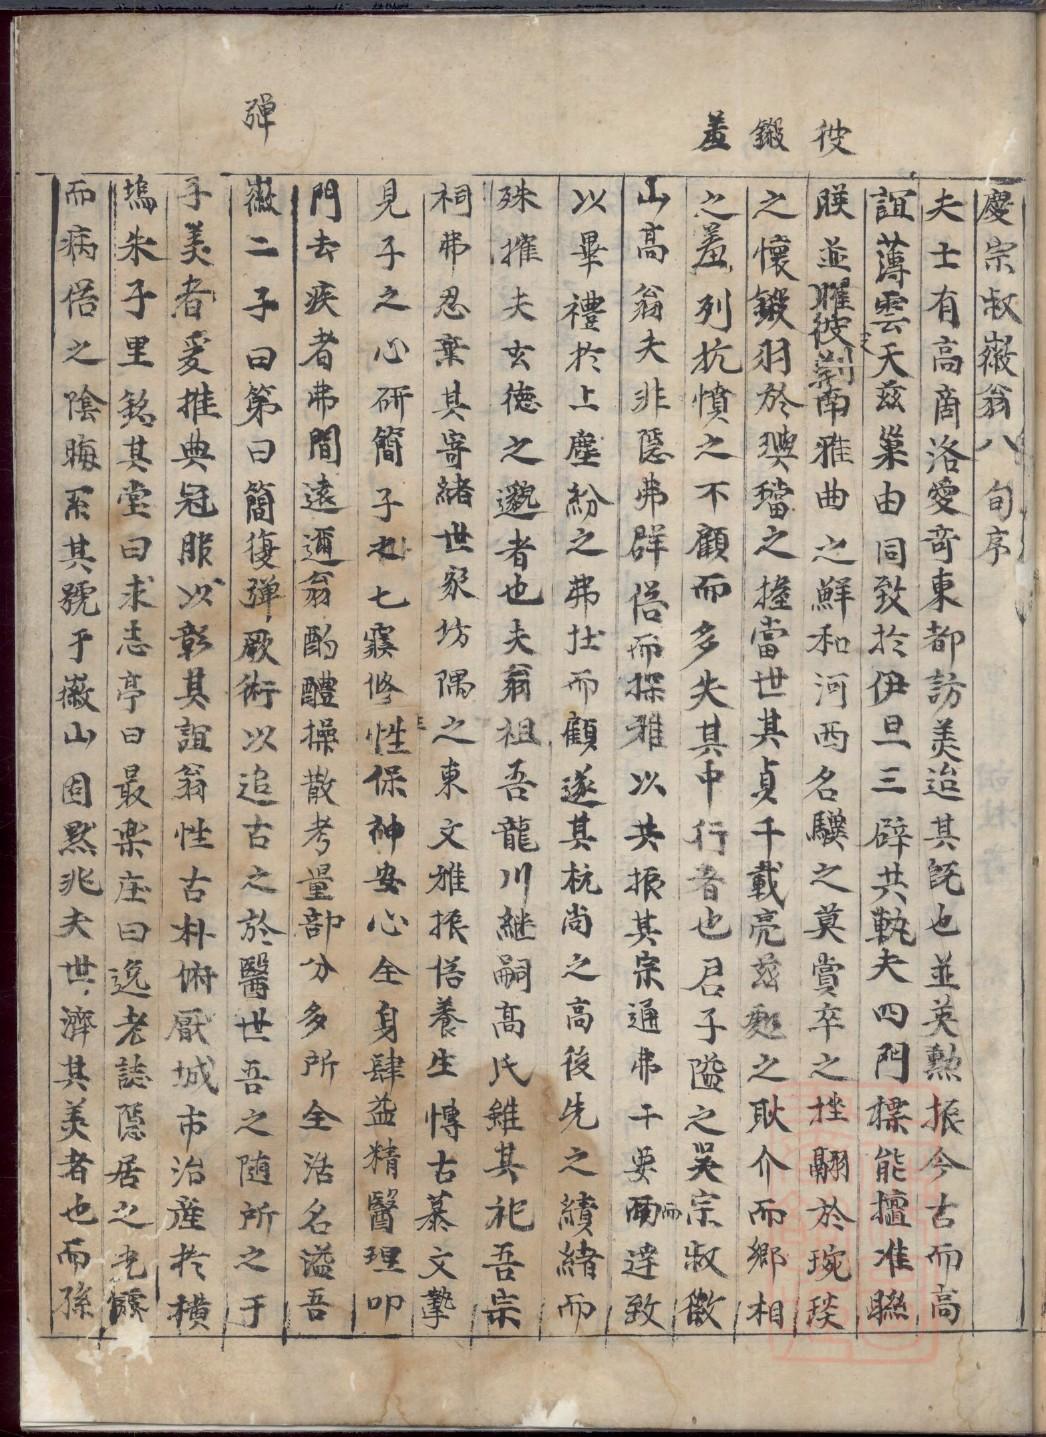 彼
鎩
羞
彈
慶宗叔薇翁八旬序
夫士有高商洛愛奇東都訪美迨其旣也並英勲振今古而高
誼薄雲天茲巢由同致於伊旦三辟共軌夫四門標能擅准聮
暎並耀彼荊南雅曲之鮮和河西名驥之莫賞卒之挫翮於琬琰
之懷鎩羽於璵璠之擔當世其貞千載亮茲之耿介而鄉相
之羞列抗憤之不顧而多失其中行者也君子隘之吴宗叔薇
山高翁夫非隱弗群俗而探雅以共振其宗通弗干要而逹致
以畢禮於上塵紛之弗拄而顧遂其杭尚之高後先之績緒而
殊摧夫玄德之邈者也夫翁祖吾龍川継嗣高氏雖其祀吾宗
祠弗忍棄其寄緒世家坊隅之東文雅振俗養生慱古慕文摯
見子之心研簡子之七竅修性保神安心全身肆益精醫理叩
門去疾者弗間遠邇翁酌醴操散考量部分多所全活名溢吾
薇二子曰第曰簡復彈厥術以追古之於醫世吾之随所之于
子美者爰推典冠服以彰其誼翁性古朴俯厭城市治產扵橫
塢朱子里銘其堂曰求志亭曰最楽庄曰逸老誌隱居之
而病俗之陰晦系其號于薇山固黙兆夫世濟其美者也而孫